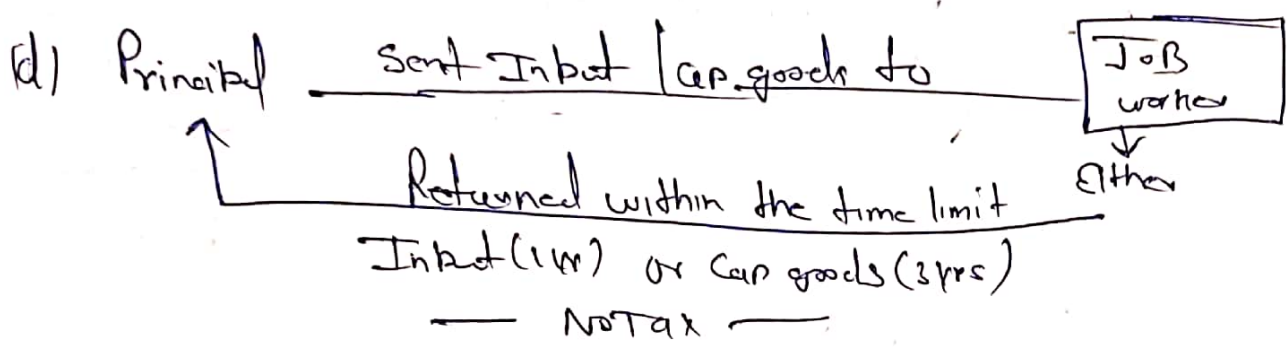 (d) Principal sent Input / cap. goods to JOB
worker
Either
Returned within the time limit
Input (1 yr) or Cap goods (3 yrs)
— NO Tax —